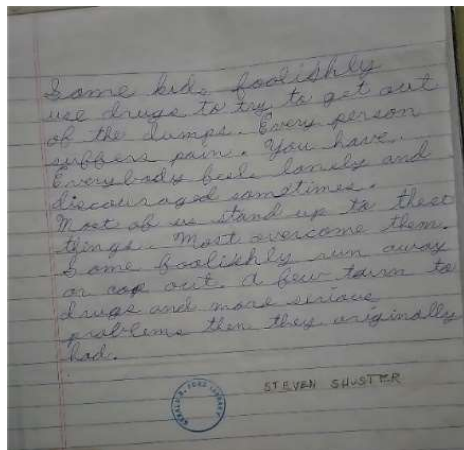 Some kids foolishly
use drugs to try to get out
of the dumps. Every person
suffers pain. You have.
Everybody feels lonely and
discouraged sometimes.
Most of us stand up to these
tings. Most overcome them.
Some foolishly run away
or cop out. A few turn to
drugs and more serious
problems then they originally
had.
GERALD R. FORD LIBRARY
STEVEN SHUSTER